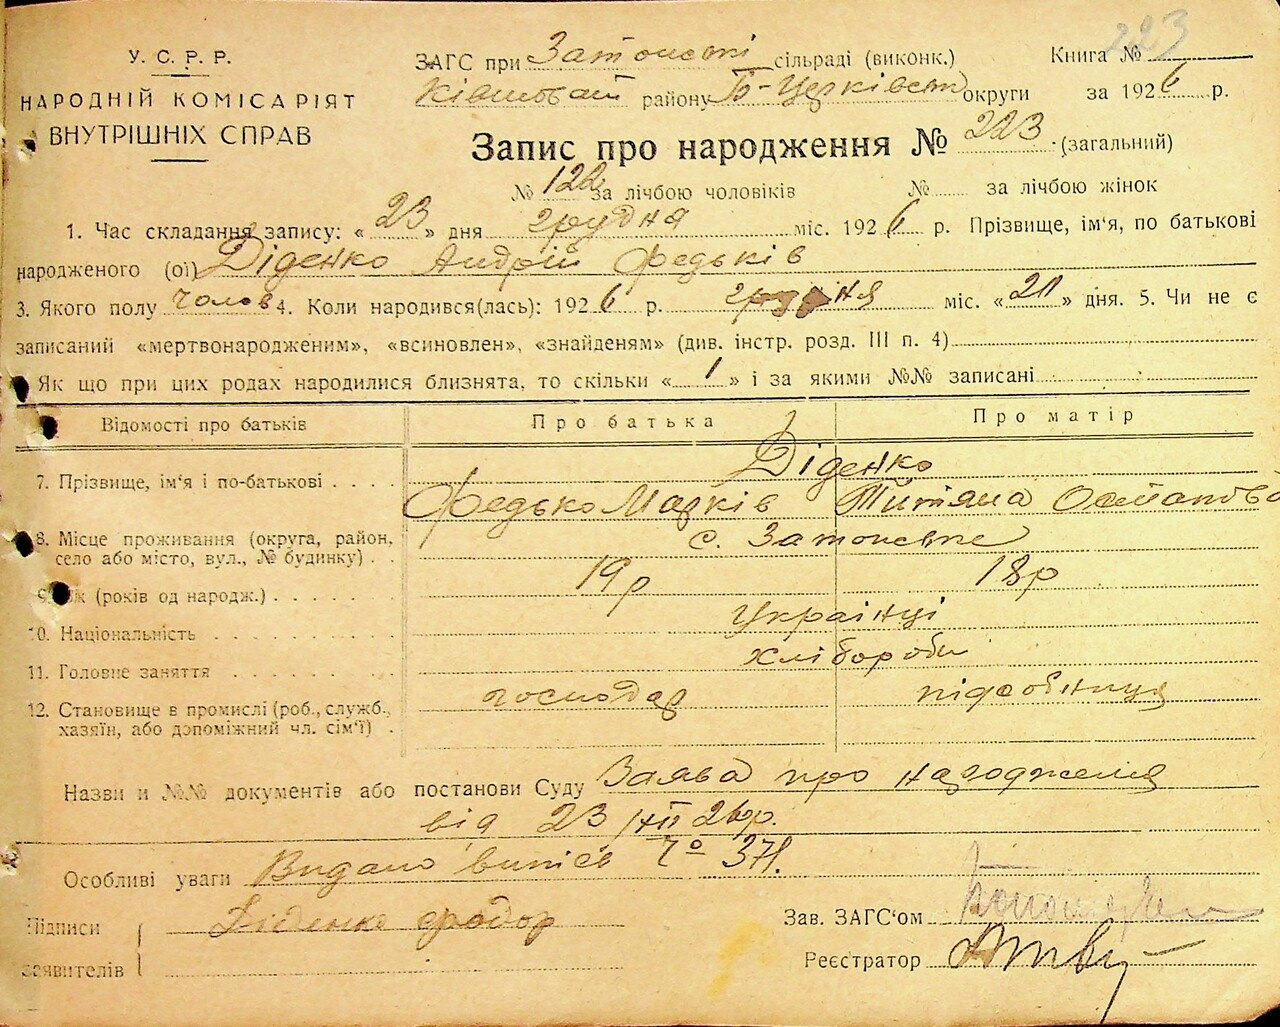 223
У. С. Р. Р.
НАРОДНІЙ КОМІСАРІЯТ
ВНУТРІШНІХ СПРАВ
ЗАГС при Затонські сільраді (виконк.) Книга №
району Б-Церківськ округи за 1926 р.
Запис про народження № 223 (загальний)
№ 122 за лічбою чоловіків № за лічбою жінок
1. Час складання запису: «23» дня грудня міс. 1926 р. Прізвище, ім‘я, по батькові
народженого (ої) Діденко Андрій Федьків
3. Якого полу чолов 4. Коли народився(лась): 1926 р. грудня міс. «21» дня. 5. Чи не є
записаний «мертвонародженим», «всиновлен», «знайденям» (див. інстр. розд. III п. 4)
Як що при цих родах народилися близнята, то скільки «1» і за якими №№ записані
Відомості про батьків Про батька Про матір
7. Прізвище, ім‘я і по-батькові Діденко
Федько Марків Титяна
8. Місце проживання (округа, район, село або місто, вул., № будинку) с.
9. Вік (років од народж.) 19 р 18 р
10. Національність Українці
11. Головне заняття хлібороби
12. Становище в промислі (роб., служб., хазяїн, або допоміжний чл. сім‘ї) господар підсобниця
Назви и №№ документів або постанови Суду Заява про народження
від 23/XII 26 р.
Особливі уваги Видано випис № 371.
Підписи заявителів Діденко Федор
Зав. ЗАГС‘ом
Реєстратор